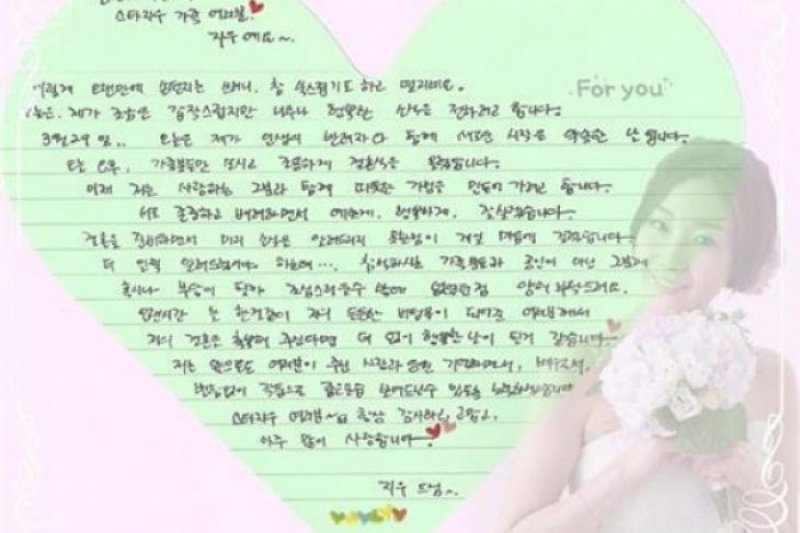 스타지우 가족 여러분.
지우예요~.
이렇게 오랜만에 손편지를 쓰려니, 참 쑥스럽기도 하고 떨리네요.
오늘은, 제가 조금은 갑작스럽지만 너무나 행복한 소식을 전하려고 합니다.
3월 29일.. 오늘은 제가 인생의 반려자와 함께 새로운 시작을 약속한 날입니다.
오늘 오후, 가족분들만 모시고 조용하게 결혼식을 올렸습니다.
이제 저는 사랑하는 그분과 함께 따뜻한 가정을 만들어 가려고 합니다.
서로 존중하고 배려하면서 예쁘게, 행복하게, 잘 살겠습니다.
결혼을 준비하면서 미리 소식을 알려드리지 못한 점이 제일 마음에 걸립니다.
더 일찍 알려드렸어야 하는데…, 참석하시는 가족분들과 공인이 아닌 그분께
혹시나 부담이 될까 조심스러울수 밖에 없었던 점 양해 부탁드려요.
오랜시간 늘 한결같이 저의 든든한 버팀목이 되어준 여러분께서
저의 결혼을 축복해 주신다면 더 없이 행복한 날이 될거 같습니다.
저는 앞으로도 여러분이 주신 사랑과 응원 기억하면서, 배우로서,
변함없이 작품으로 좋은모습 보여드릴수 있도록 노력하겠습니다
스타지우 여러분~ 항상 감사하고, 고맙고,
아주 많이 사랑합니다.
지우 드림~.
For you